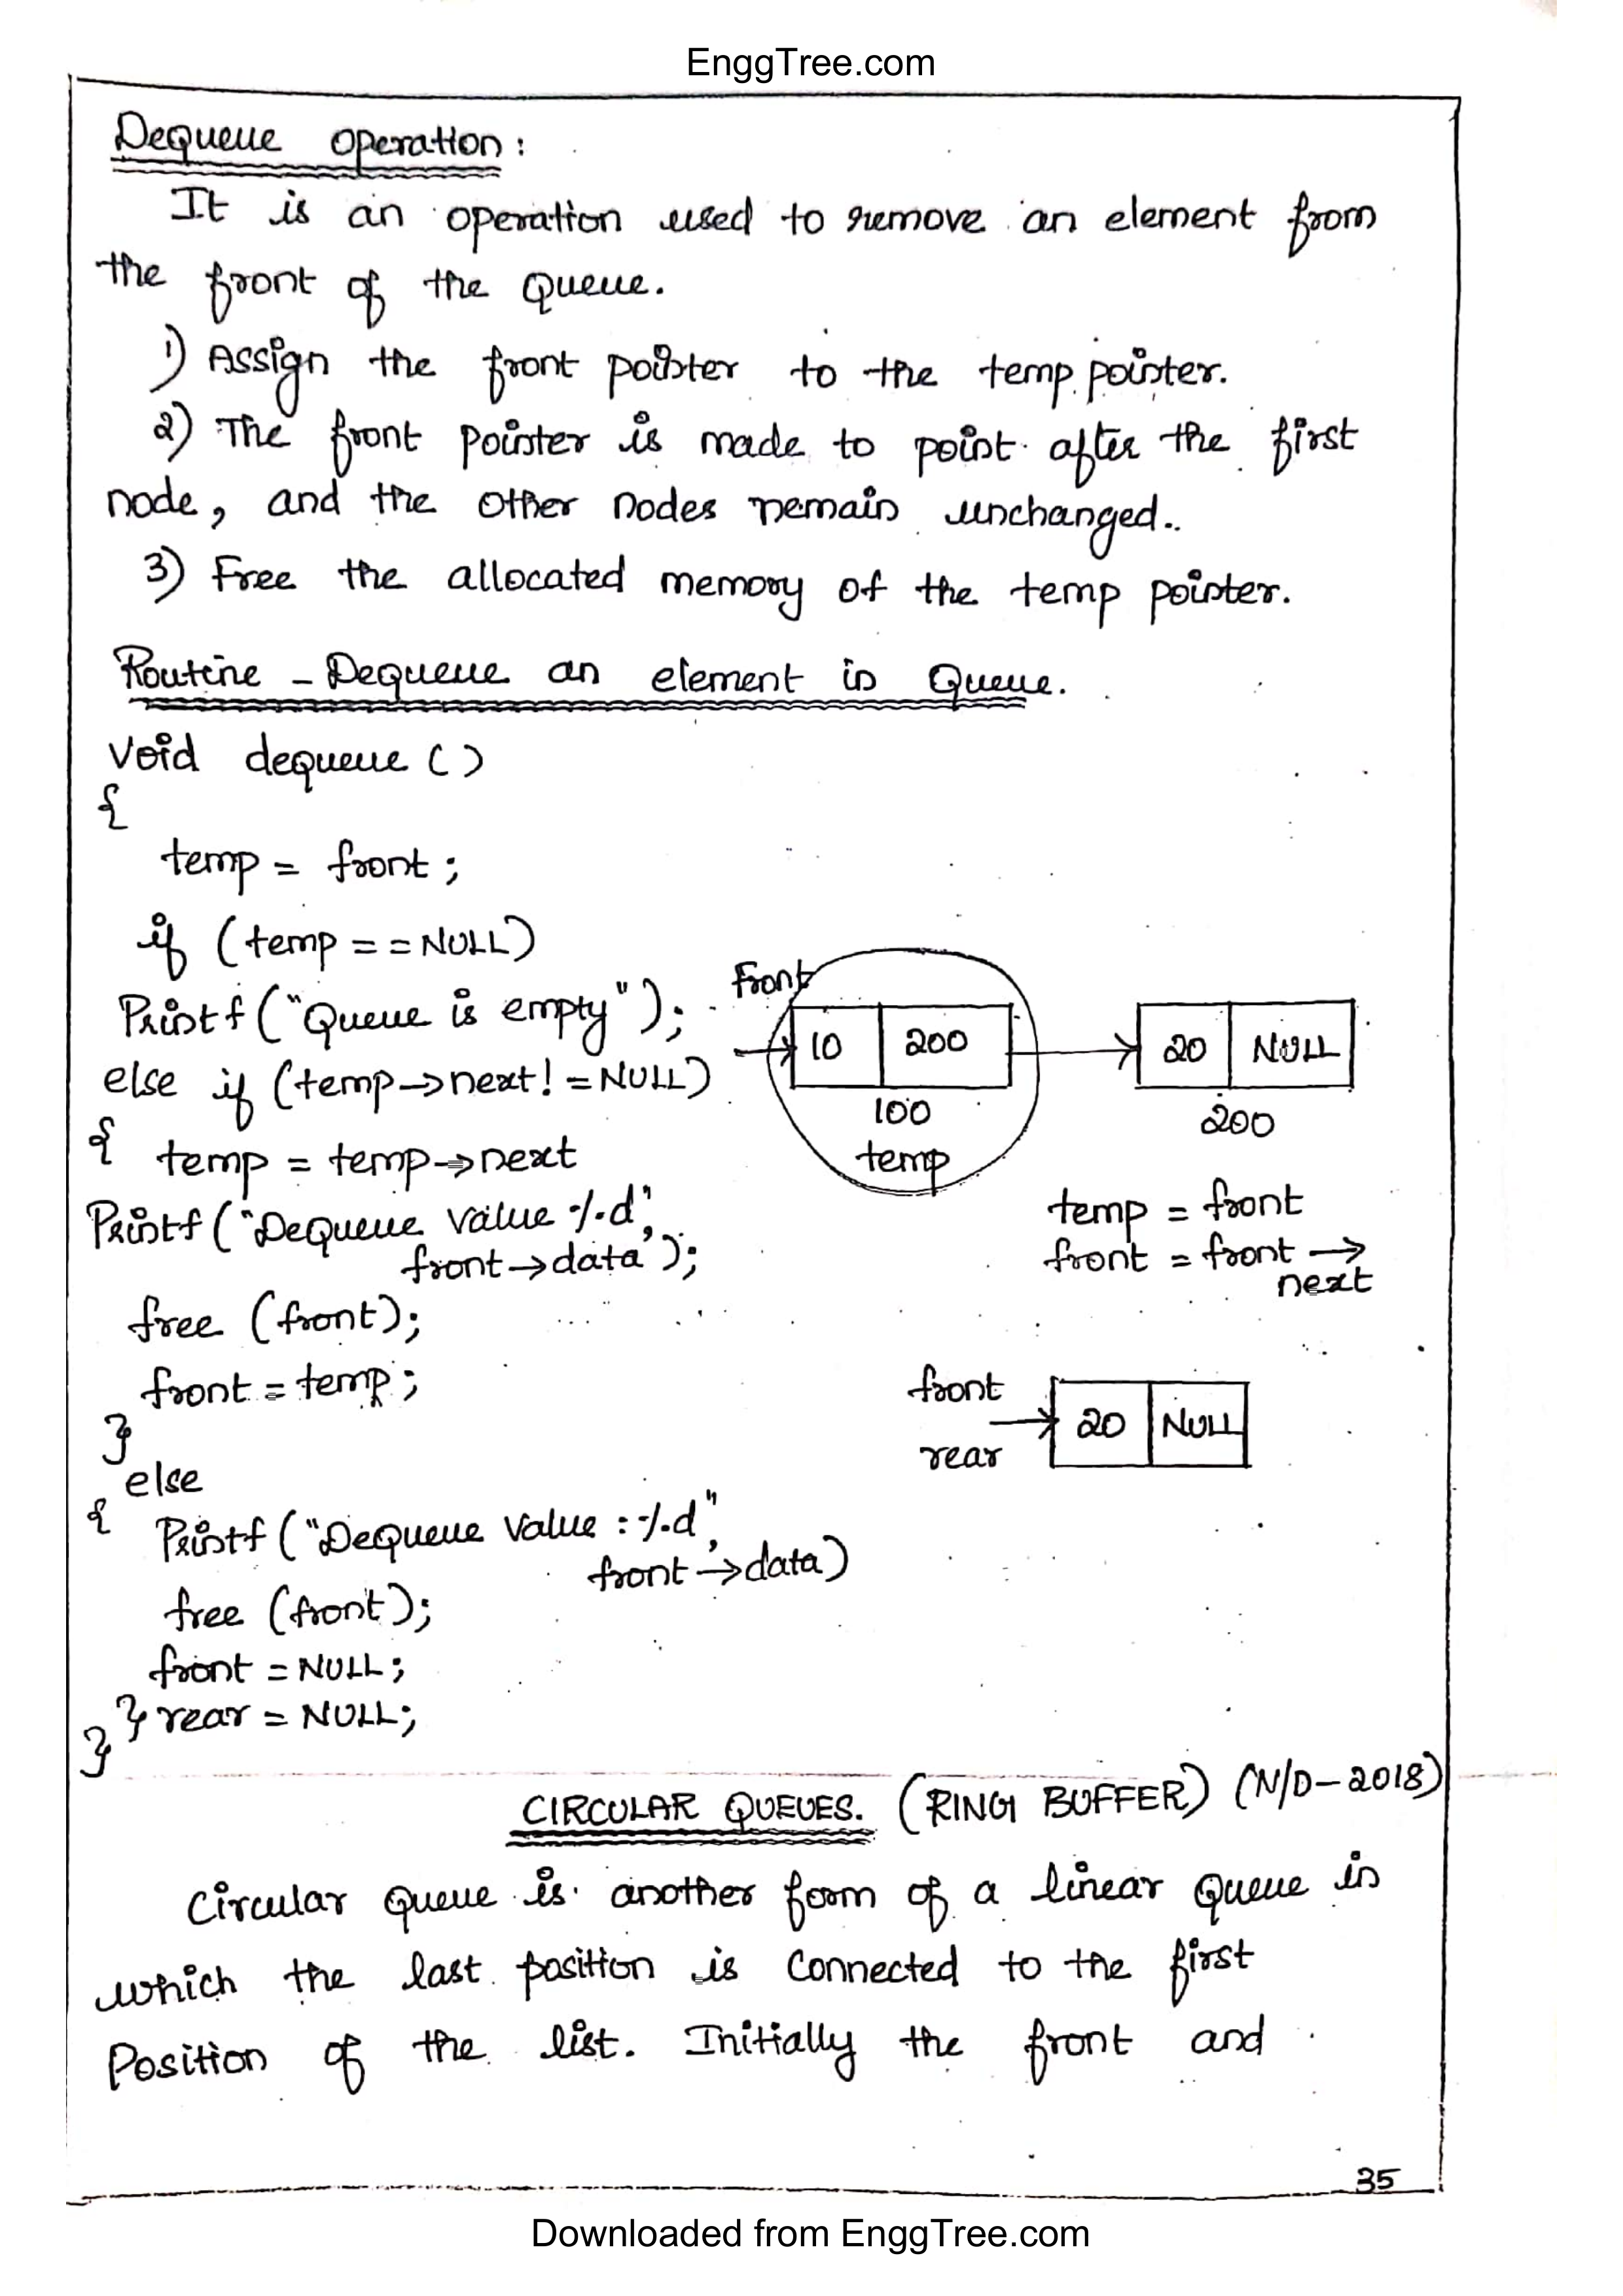 EnggTree.com
Dequeue operation:
It is an operation used to remove an element from
the front of the Queue.
1) Assign the front pointer to the temp pointer.
2) The front pointer is made to point after the first
node, and the other nodes remain unchanged..
3) Free the allocated memory of the temp pointer.
Routine - Dequeue an element in Queue.
Void dequeue ()
{
temp = front;
if (temp == NULL)
Printf ("Queue is empty");
else if (temp->next! = NULL)
{ temp = temp->next
Printf ("Dequeue Value %d",
front->data');
free (front);
front = temp;
}
else
{ Printf ("Dequeue Value : %d",
front->data)
free (front);
front = NULL;
} rear = NULL;
}
Front
10 200
100
temp
20 NULL
200
temp = front
front = front ->
next
front
rear
20 NULL
CIRCULAR QUEUES. (RING BUFFER) (N/D-2018)
Circular Queue is another form of a linear Queue in
which the last position is Connected to the first
Position of the list. Initially the front and
35
Downloaded from EnggTree.com